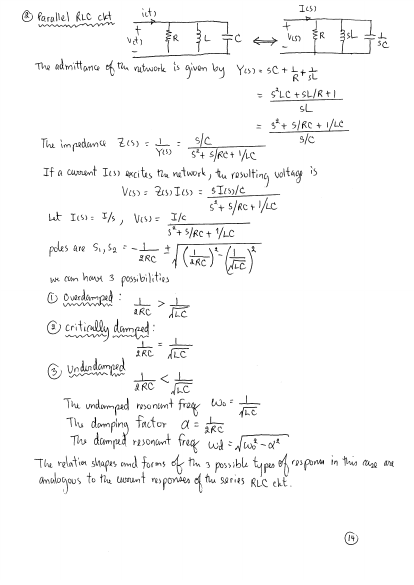 ② Parallel RLC ckt
i(t) + V(t) - R L C ⟺ I(s) + V(s) - R sL 1/sC
The admittance of the network is given by Y(s) = sC + 1/R + 1/sL
= (s²LC + sL/R + 1) / sL
= (s² + s/RC + 1/LC) / (s/C)
The impedance Z(s) = 1/Y(s) = (s/C) / (s² + s/RC + 1/LC)
If a current I(s) excites the network, the resulting voltage is
V(s) = Z(s) I(s) = (s I(s)/C) / (s² + s/RC + 1/LC)
Let I(s) = I/s, V(s) = (I/C) / (s² + s/RC + 1/LC)
poles are s₁, s₂ = -1/2RC ± √((1/2RC)² - (1/√LC)²)
we can have 3 possibilities
① Overdamped : 1/2RC > 1/√LC
② critically damped :
1/2RC = 1/√LC
③ Underdamped
1/2RC < 1/√LC
The undamped resonant freq ω₀ = 1/√LC
The damping factor α = 1/2RC
The damped resonant freq ωd = √(ω₀² - α²)
The relative shapes and forms of the 3 possible types of response in this case are
analogous to the current responses of the series RLC ckt.
14